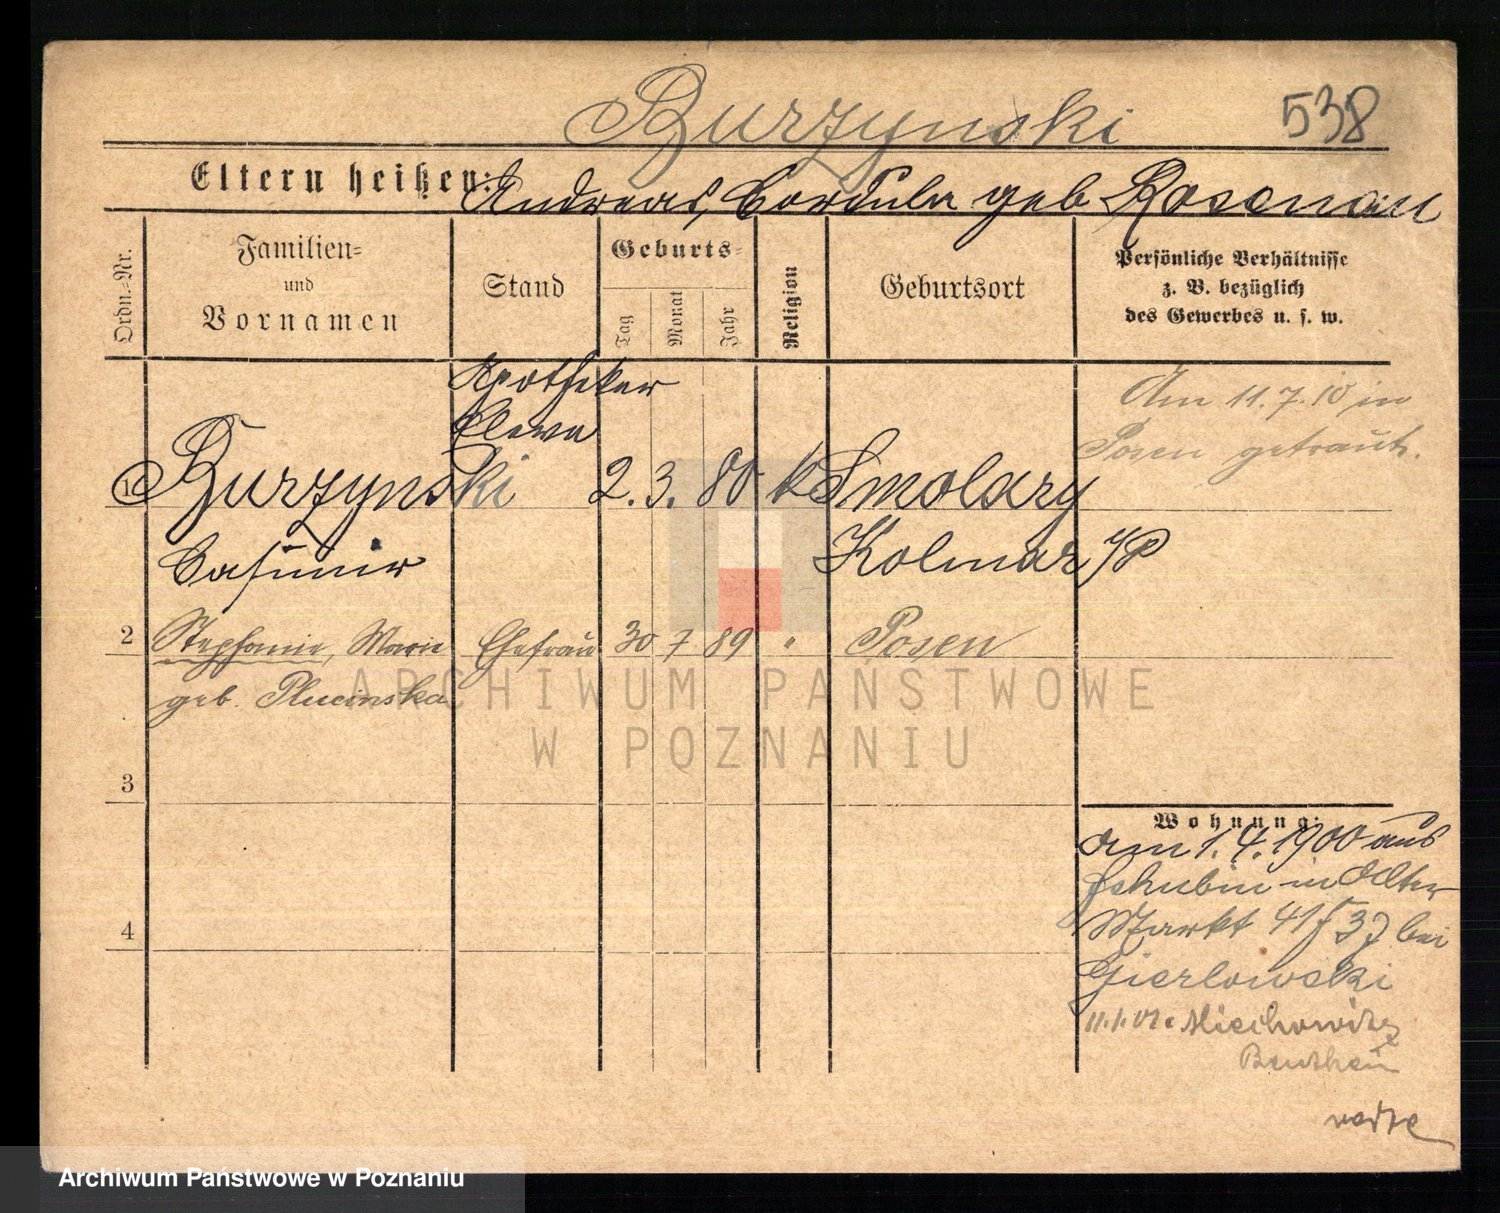 Burzynski 538
Eltern heißen: Andreas, Cordula geb Rosenau
Ordn.-Nr. Familien- und Vornamen Stand Geburts- Tag Monat Jahr Religion Geburtsort Persönliche Verhältnisse z. B. bezüglich des Gewerbes u. s. w.
Apotheker
Eleve
Am 11.7.10 in
Posen getraut.
1 Burzynski 2. 3. 80 k Smolary
Casimir Kolmar i/P
2 Stephanie, Marie Ehefrau 30 7 89 " Posen
geb. Plucinska
ARCHIWUM PAŃSTWOWE
W POZNANIU
3
Wohnung:
am 1.4.1900 aus
Schubin in Alter
Markt 41 bei
Gierlowski
11.1.01. Miechowitz
Beuthen
4
Archiwum Państwowe w Poznaniu